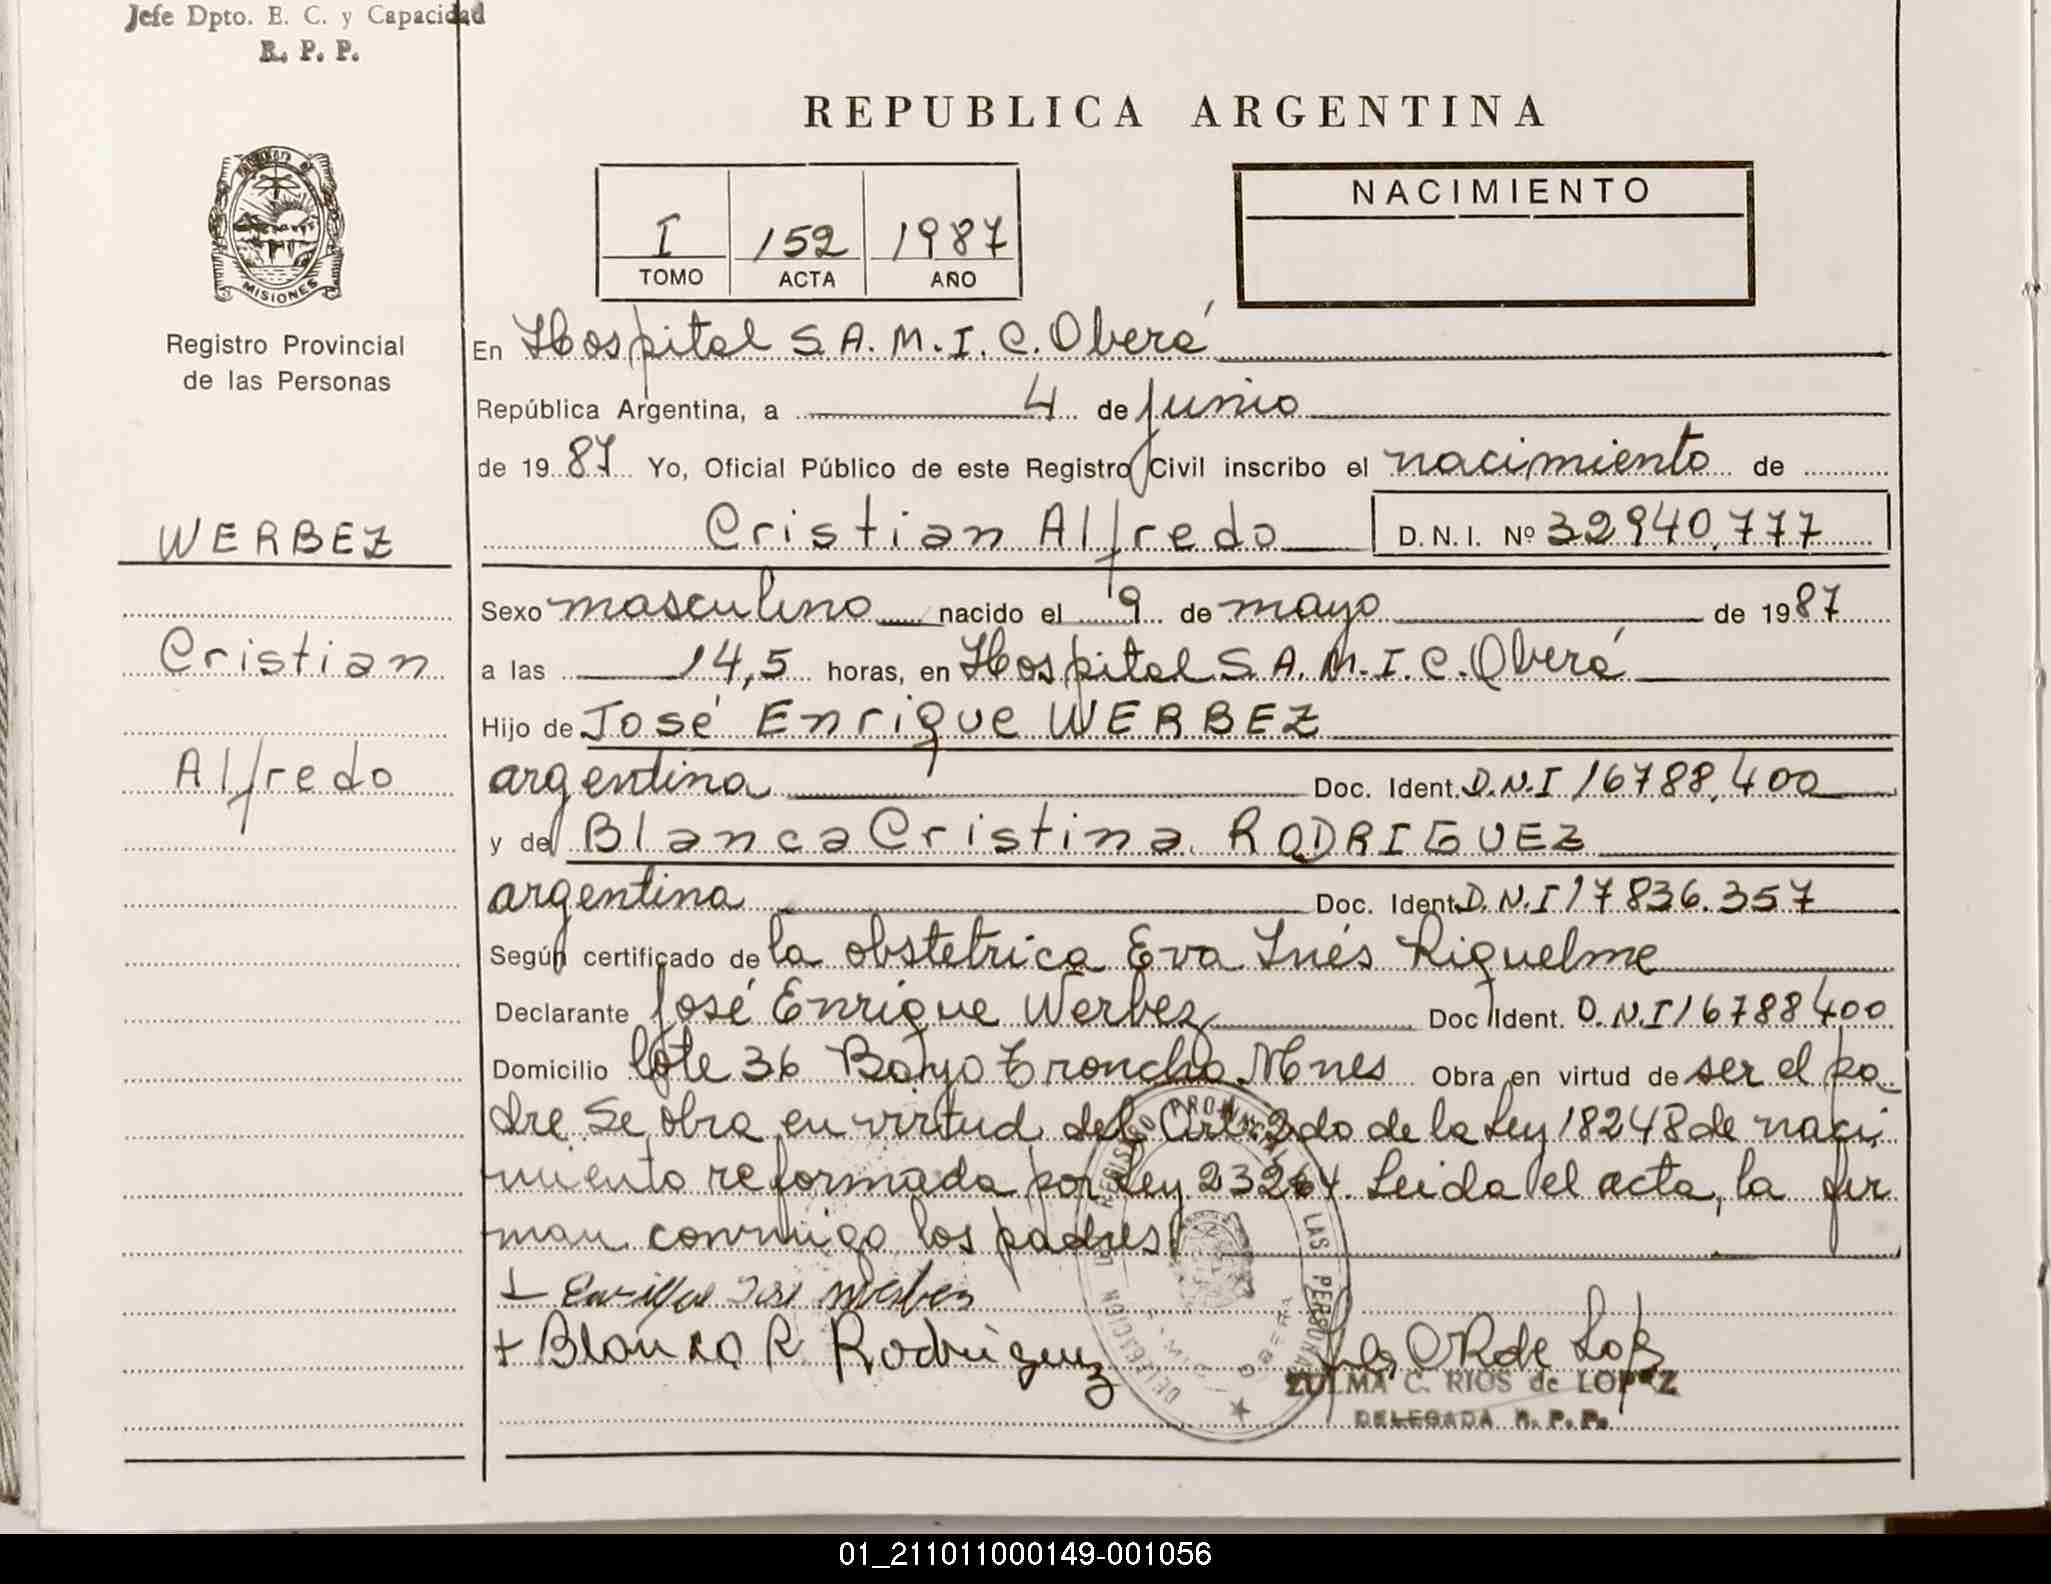 Jefe Dpto. E. C. y Capacidad
R. P. P.
REPUBLICA ARGENTINA
MISIONES
Registro Provincial
de las Personas
I 152 1987
TOMO ACTA AÑO
NACIMIENTO
En Hospital S.A.M.I.C. Oberá
República Argentina, a 4 de junio
de 1987 Yo, Oficial Público de este Registro Civil inscribo el nacimiento de
Cristian Alfredo D.N.I. Nº 32940.777
WERBEZ
Cristian
Alfredo
Sexo masculino nacido el 9 de mayo de 1987
a las 14,5 horas, en Hospital S.A.M.I.C. Oberá
Hijo de José Enrique WERBEZ
argentina Doc. Ident. D.N.I 16788.400
y de Blanca Cristina RODRIGUEZ
argentina Doc. Ident. D.N.I 17836.357
Según certificado de la obstetrica Eva Inés Riquelme
Declarante José Enrique Werbez Doc Ident. D.N.I 16788400
Domicilio lote 36 Bajo Troncho Mnes Obra en virtud de ser el pa
dre Se obra en virtud del Art. 2do de la Ley 18248 de naci
miento reformada por Ley 23264. Leida el acta, la fir
man conmigo los padres
Enrique José Werbez
+ Blanca R. Rodriguez
REGISTRO PROVINCIAL LAS PERSONAS
DELEGACION
ZULMA C. RIOS de LOPEZ
DELEGADA R. P. P.
01_211011000149-001056